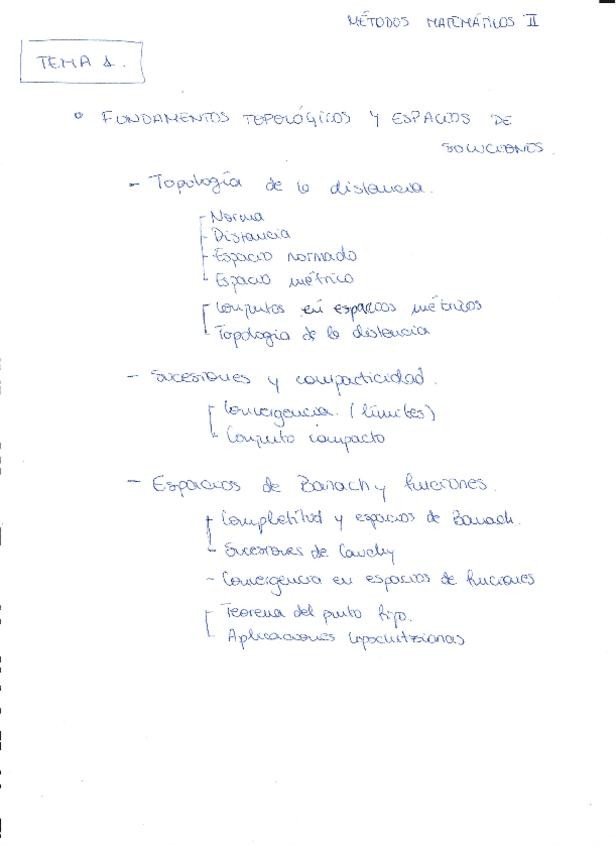 MÉTODOS MATEMÁTICOS II
TEMA 1.
FUNDAMENTOS TOPOLÓGICOS Y ESPACIOS DE
SOLUCIONES.
- Topología de la distancia.
- Norma
- Distancia
- Espacio normado
- Espacio métrico
- Conjuntos en espacios métricos
- Topología de la distancia
- Sucesiones y compacticidad.
- Convergencia. (límites)
- Conjunto compacto
- Espacios de Banach y funciones.
- Completitud y espacios de Banach.
- Sucesiones de Cauchy
- Convergencia en espacios de funciones
- Teorema del punto fijo.
- Aplicaciones Lipschitzianas